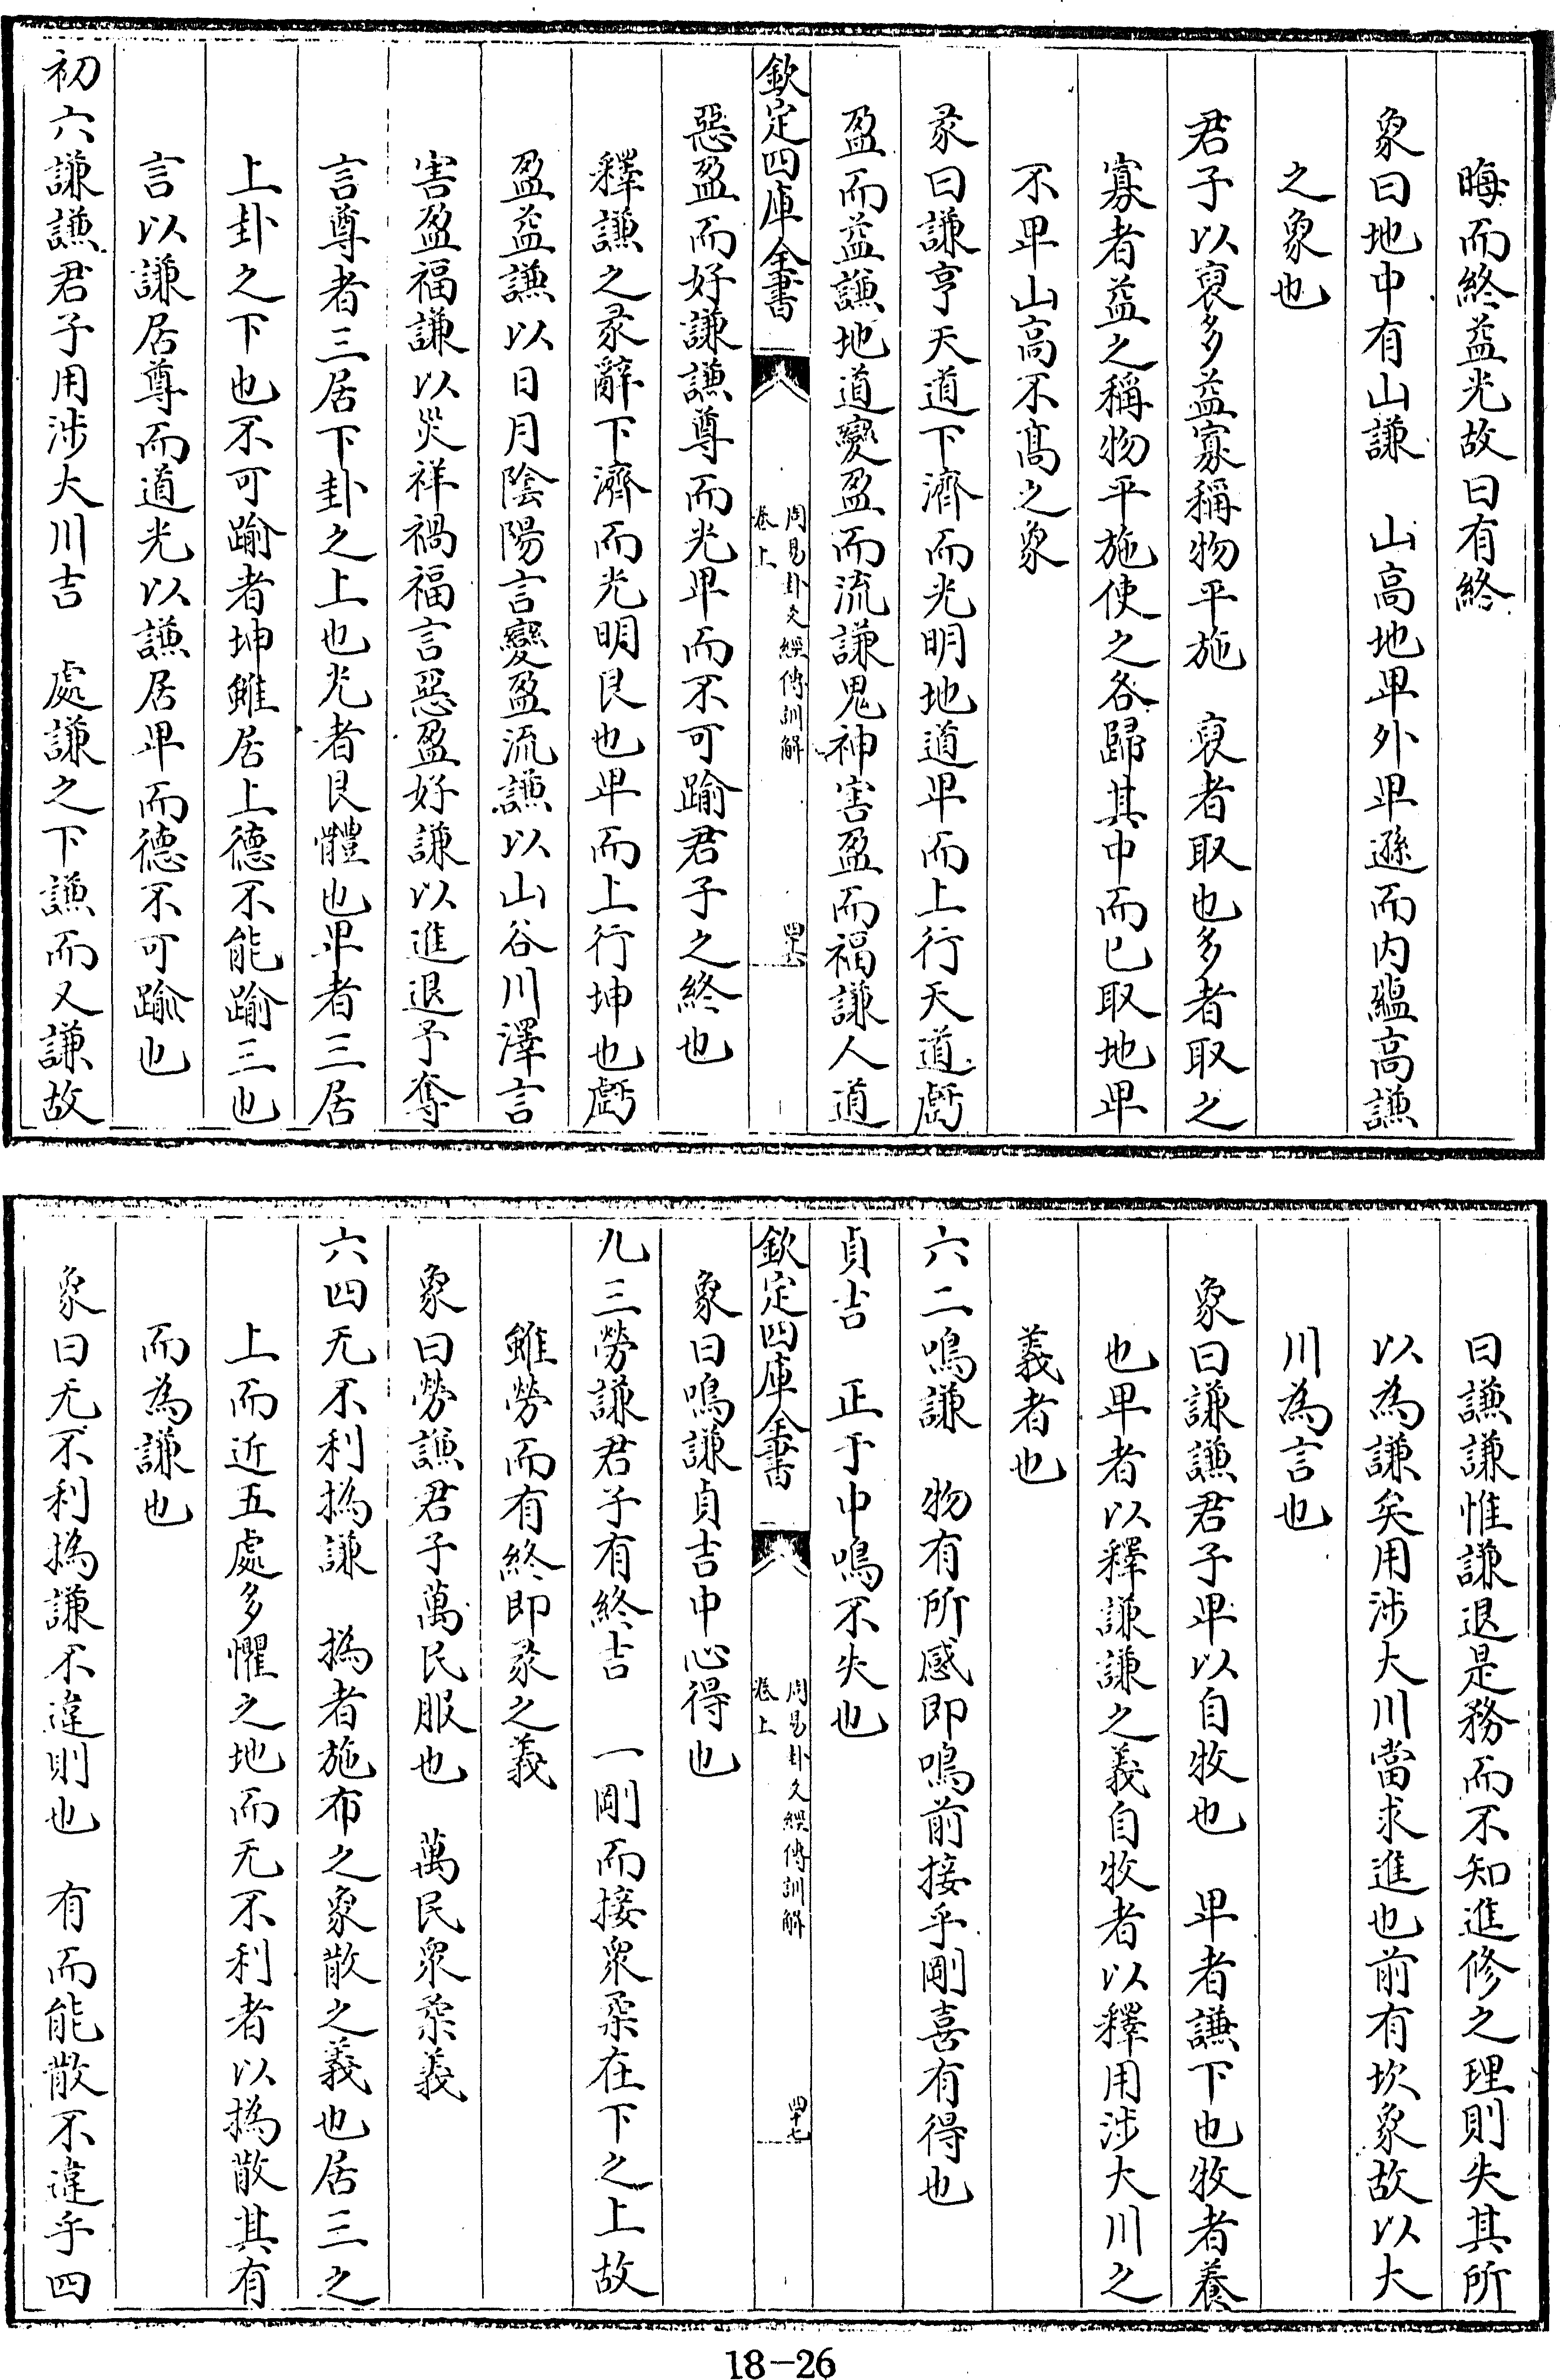 晦而終益光故曰有終
象曰地中有山謙　山高地卑外卑遜而內蘊高謙
之象也
君子以裒多益寡稱物平施　裒者取也多者取之
寡者益之稱物平施使之各歸其中而已取地卑
不卑山高不髙之象
彖曰謙亨天道下濟而光明地道卑而上行天道虧
盈而益謙地道變盈而流謙鬼神害盈而福謙人道
欽定四庫全書
周易卦爻經傳訓解
卷上
四十六
惡盈而好謙謙尊而光卑而不可踰君子之終也
釋謙之彖辭下濟而光明艮也卑而上行坤也虧
盈益謙以日月陰陽言變盈流謙以山谷川澤言
害盈福謙以災祥禍福言惡盈好謙以進退予奪
言尊者三居下卦之上也光者艮體也卑者三居
上卦之下也不可踰者坤雖居上德不能踰三也
言以謙居尊而道光以謙居卑而德不可踰也
初六謙謙君子用涉大川吉　處謙之下謙而又謙故
曰謙謙惟謙退是務而不知進修之理則失其所
以為謙矣用涉大川當求進也前有坎象故以大
川為言也
象曰謙謙君子卑以自牧也　卑者謙下也牧者養
也卑者以釋謙謙之義自牧者以釋用涉大川之
義者也
六二鳴謙　物有所感即鳴前接乎剛喜有得也
貞吉　正于中鳴不失也
欽定四庫全書
周易卦爻經傳訓解
卷上
四十七
象曰鳴謙貞吉中心得也
九三勞謙君子有終吉　一剛而接衆柔在下之上故
雖勞而有終即彖之義
象曰勞謙君子萬民服也　萬民衆柔義
六四无不利撝謙　撝者施布之象散之義也居三之
上而近五處多懼之地而无不利者以撝散其有
而為謙也
象曰无不利撝謙不違則也　有而能散不違乎四
18-26